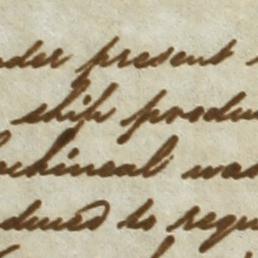 nder present
ship produ
ochineal was
duced to requ